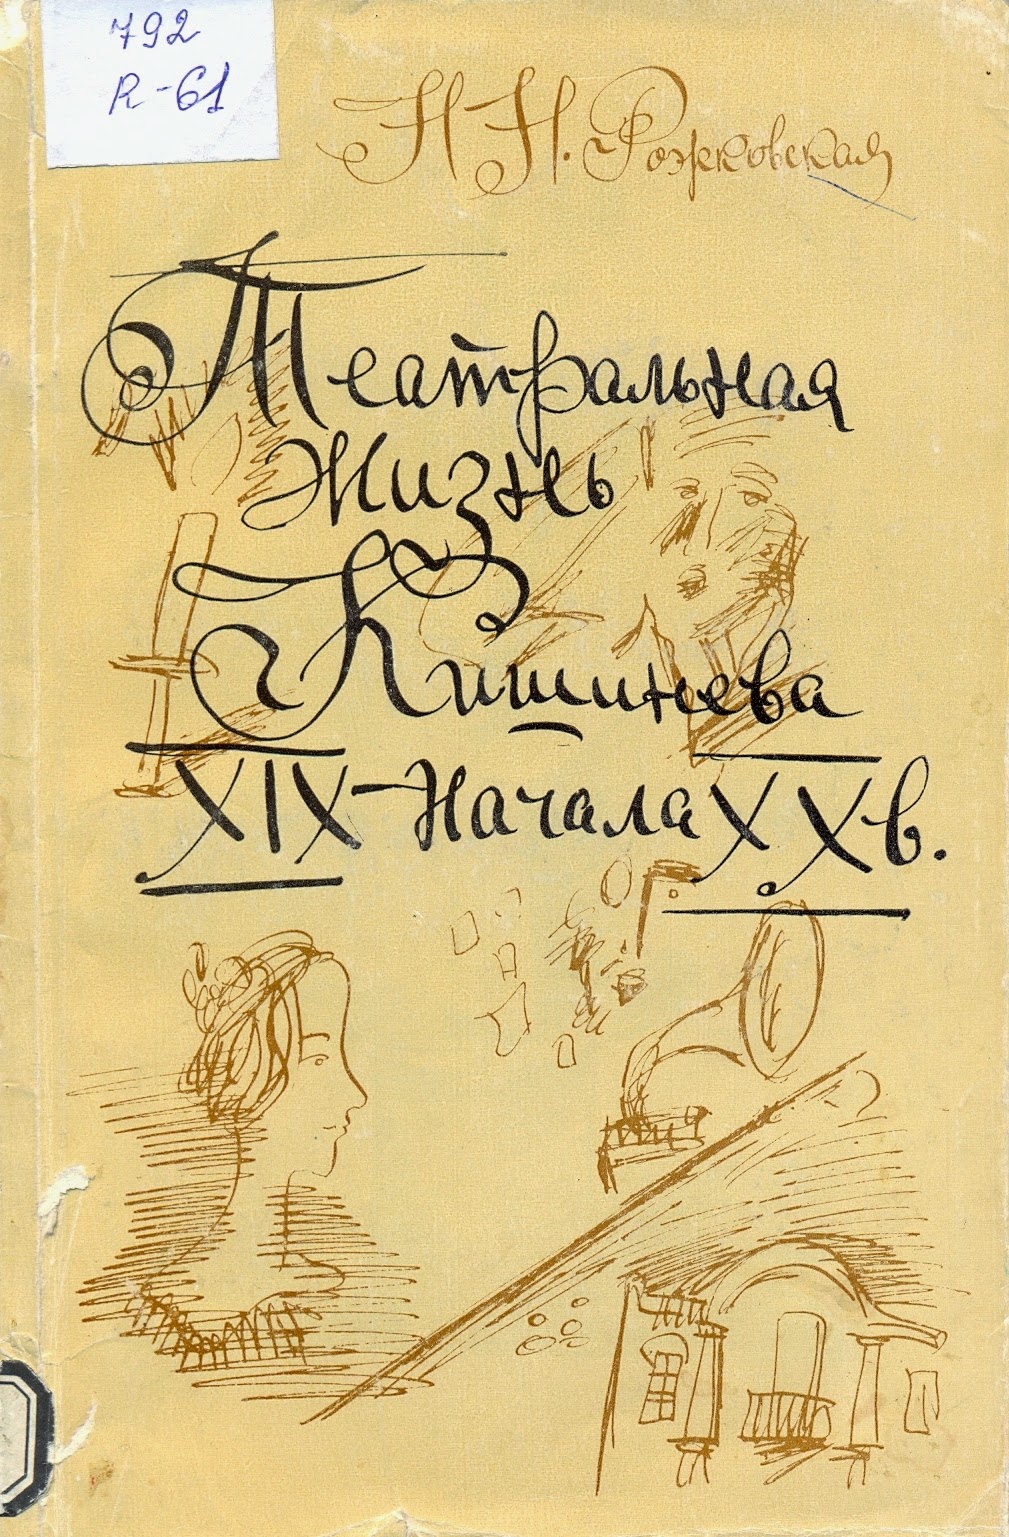 792
R-61
Н Н. Рожковская
Театральная
Жизнь
Кишинева
XIX-Начала XX в.